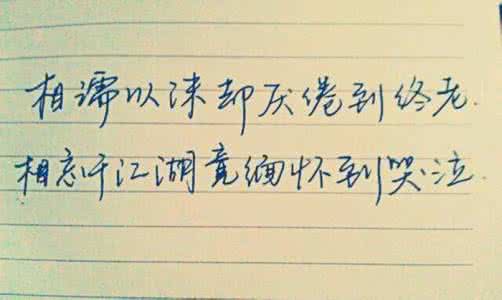 相濡以沫却厌倦到终老.
相忘于江湖竟缅怀到哭泣